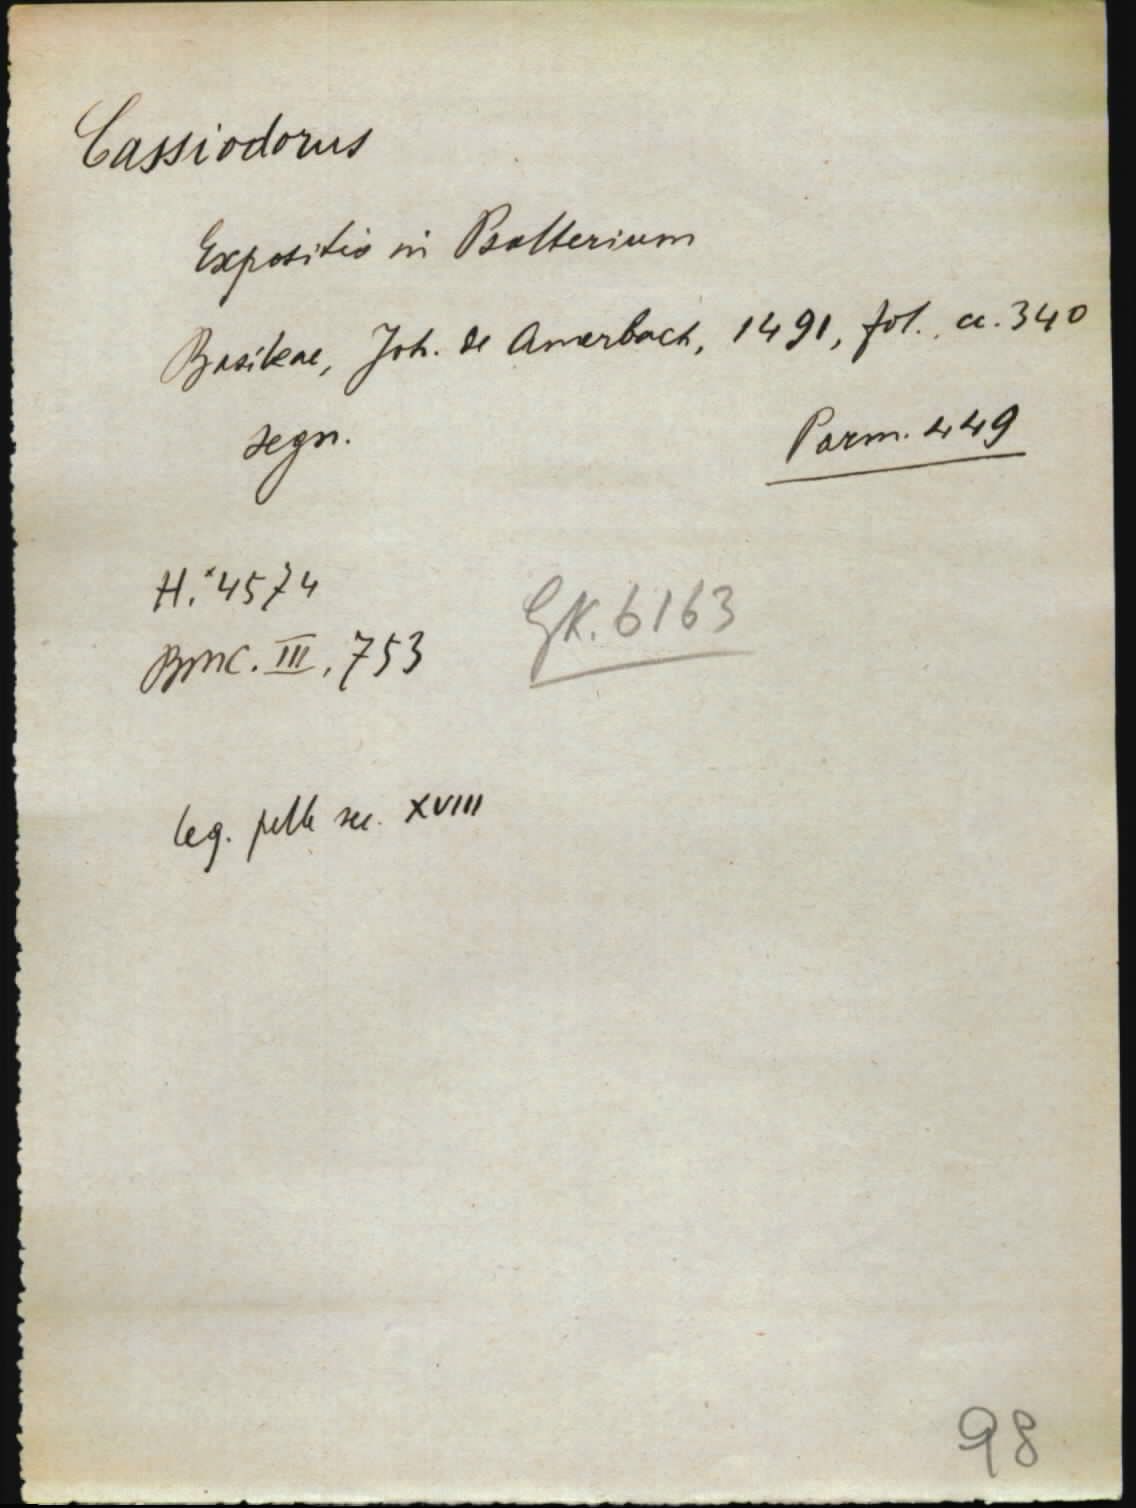 Cassiodorus
Expositio in Psalterium
Basileae, Joh. de Amerbach, 1491, fol., cc. 340
segn.
Parm. 449
H.*4574
GK. 6163
BMC. III, 753
leg. pelle sec. XVIII
98